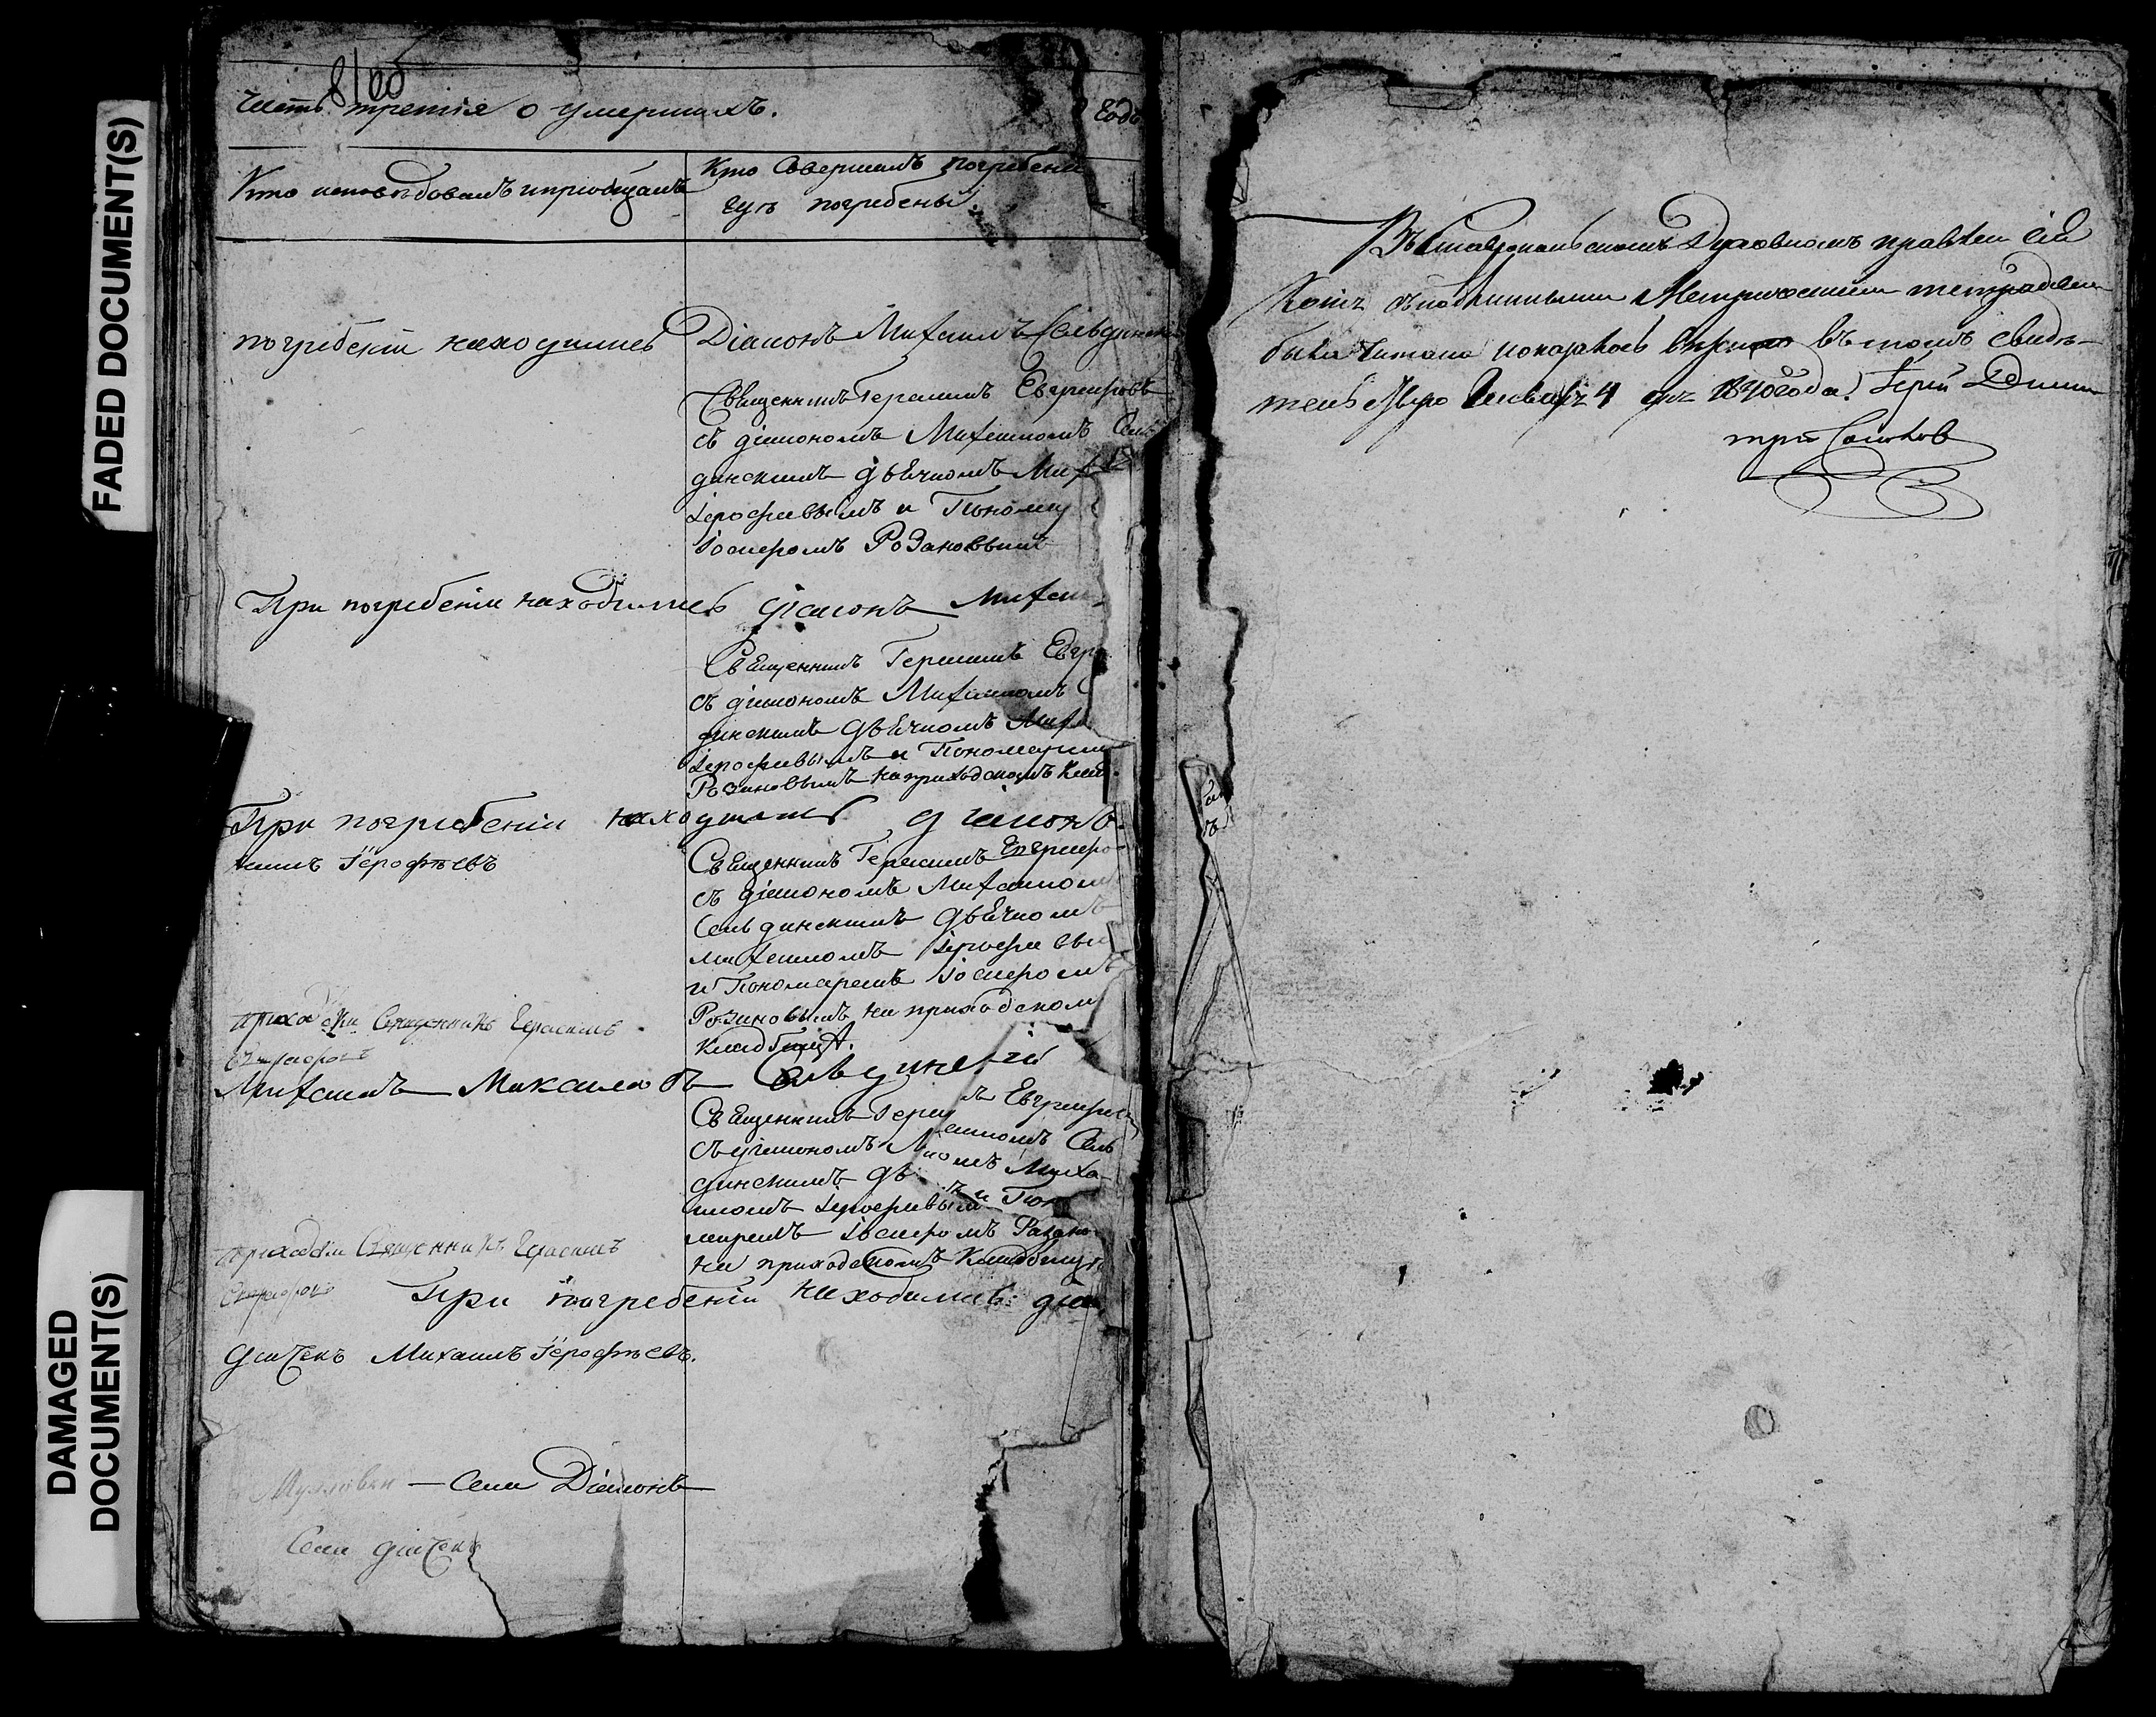 FADED DOCUMENT(S)
DAMAGED DOCUMENT(S)
Часть третія о умершихъ.
Года
Кто исповѣдовалъ и пріобщалъ
Кто Совершалъ погребеніе
гдѣ погребены
погребеніи находились Діаконъ Михаилъ Сельдинск
Священникъ Герасимъ
съ діакономъ Михаиломъ Сель
динскимъ дьячкомъ Мих
Іерофеевымъ и Поном
Іосифомъ Розановымъ
При погребеніи находились діаконъ Михаи
Священникъ Герасимъ
съ діакономъ Михаиломъ С
динскимъ дьячкомъ Миха
Іерофеевымъ и Пономаремъ
Розановымъ на приходскомъ клад
При погребеніи находились діаконъ
хаилъ Іерофѣевъ
Священникъ Герасимъ
съ діакономъ Михаиломъ
Сельдинскимъ дьячкомъ
михаиломъ Іерофеевы
и Пономаремъ Іосифомъ
Розановымъ на приходском
кладбищѣ.
приходскій Священникъ Герасимъ
Михаилъ Максимовъ Сельдинскій
Священникъ Гера
съ діакономъ М аиломъ Сель
динскимъ дь комъ Миха
иломъ Іерофеевымъ и Пон
маремъ Іосифомъ Розано
на приходскомъ Кладбищѣ
приходскій Священникъ Герасимъ
При погребеніи находились діа
дьячекъ Михаилъ Іерофѣевъ.
Села Діаконъ
Села дьячекъ
Въ Ставропольскомъ Духовномъ правленіи сія
Копія съ подлинными Метрическими тетрадями
была читана и оказалось вѣрно въ томъ свидѣ-
тельствую Генваря 4 дня 1840 года. Іерей Дими
трій